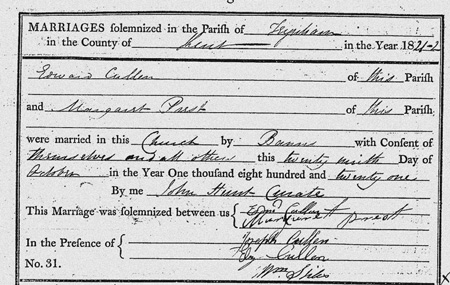 MARRIAGES solemnized in the Parish of Trynsham
in the County of Kent in the Year 1821-2
Edward Cullen of this Parish
and Margaret Prest of this Parish
were married in this Church by Banns with Consent of
themselves and all others this twenty ninth Day of
October in the Year One thousand eight hundred and twenty one
By me John Hunt Curate
This Marriage was solemnized between us { Edwd Cullen
Margaret prest
In the Presence of { Joseph Cullen
Cullen
No. 31. Wm Stiles